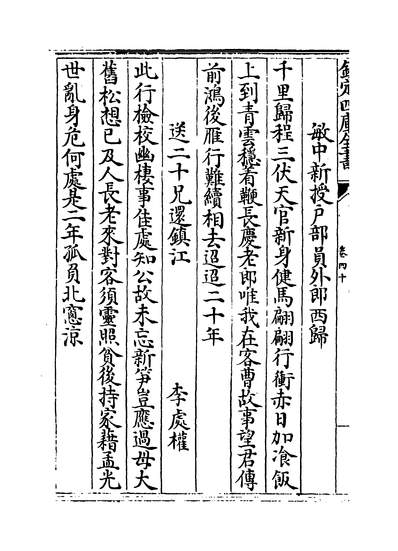 欽定四庫全書
卷四十
敏中新授户部員外郎西歸
千里歸程三伏天官新身健馬翩翩行衝赤日加飡飯
上到青雲穩着鞭長慶老郎唯我在客曹故事望君傳
前鴻後雁行難續相去迢迢二十年
送二十兄還鎮江
李處權
此行檢校幽棲事佳處知公故未忘新笋豈應過母大
舊松想已及人長老來對客須靈照貧後持家藉孟光
世亂身危何處是二年孤負北窻涼